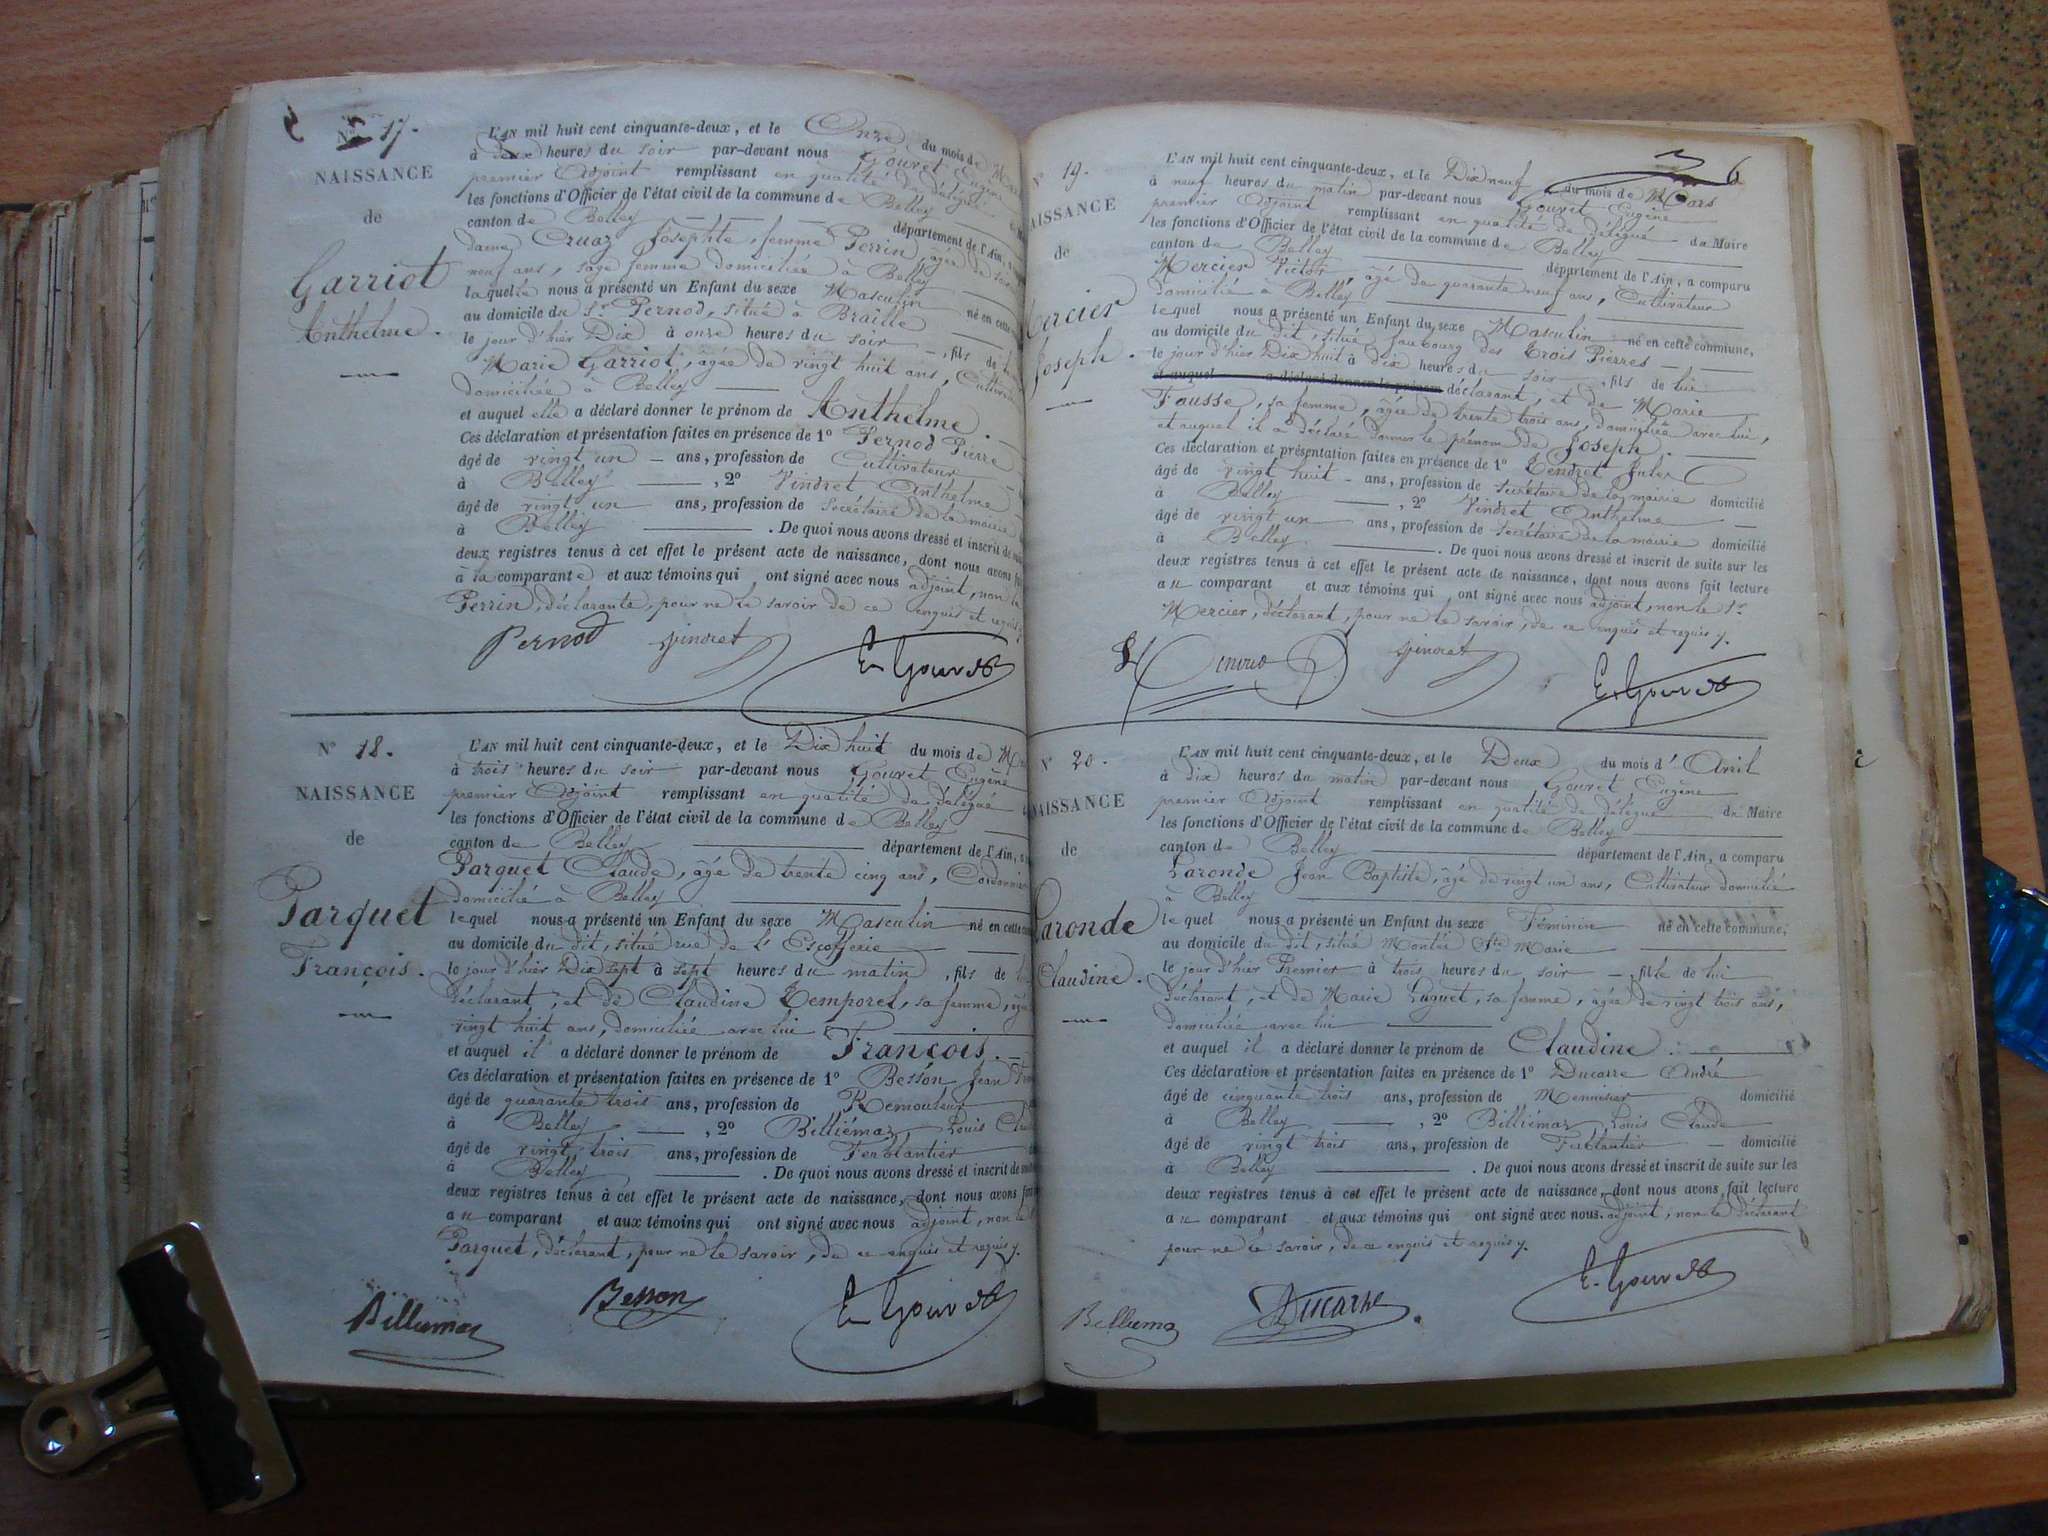 N° 17.
NAISSANCE
de
Garriot
Anthelme.
L'AN mil huit cent cinquante-deux, et le Onze du mois de
à deux heures du soir par-devant nous Gouvet Eugène
premier Adjoint remplissant en qualité de délégué
les fonctions d'Officier de l'état civil de la commune de Belley
canton de Belley département de l'Ain, a
dame Cruaz Josephte, femme Perrin, âgée de
neuf ans, sage femme domiciliée à Belley
laquelle nous a présenté un Enfant du sexe Masculin né en cette
au domicile du Sr Pernod, situé à Braille
le jour d'hier Dix à onze heures du soir, fils de
Marie Garriot, âgée de vingt huit ans,
domiciliée à Belley
et auquel elle a déclaré donner le prénom de Anthelme.
Ces déclaration et présentation faites en présence de 1° Pernod Pierre
âgé de vingt un ans, profession de Cultivateur
à Belley, 2° Vindret Anthelme
âgé de vingt un ans, profession de Secrétaire de la mairie
à Belley. De quoi nous avons dressé et inscrit de
deux registres tenus à cet effet le présent acte de naissance, dont nous avons
à la comparante et aux témoins qui ont signé avec nous adjoint, non la
Perrin, déclarante, pour ne le savoir de ce enquis et requis
Pernod Vindret E. Gouvet
N° 18.
NAISSANCE
de
Parquet
François.
L'AN mil huit cent cinquante-deux, et le Dix huit du mois de
à trois heures du soir par-devant nous Gouvet Eugène
premier Adjoint remplissant en qualité de délégué
les fonctions d'Officier de l'état civil de la commune de Belley
canton de Belley département de l'Ain, a
Parquet Claude, âgé de trente cinq ans,
domicilié à Belley
lequel nous a présenté un Enfant du sexe Masculin né en cette
au domicile du dit, situé rue de l'Escofferie
le jour d'hier Dix sept à sept heures du matin, fils de
déclarant, et de Claudine Temporel, sa femme,
vingt huit ans, domiciliée avec lui
et auquel il a déclaré donner le prénom de François.
Ces déclaration et présentation faites en présence de 1° Besson Jean
âgé de quarante trois ans, profession de Remouleur
à Belley, 2° Billiémaz Louis
âgé de vingt trois ans, profession de Ferblantier
à Belley. De quoi nous avons dressé et inscrit de
deux registres tenus à cet effet le présent acte de naissance, dont nous avons
au comparant et aux témoins qui ont signé avec nous adjoint, non le
Parquet, déclarant, pour ne le savoir, de ce enquis et requis y.
Billiemaz Besson E. Gouvet
6
19.
AISSANCE
de
ercier
Joseph.
L'AN mil huit cent cinquante-deux, et le Dix neuf du mois de Mars
à neuf heures du matin par-devant nous Gouvet Eugène
premier Adjoint remplissant en qualité de délégué du Maire
les fonctions d'Officier de l'état civil de la commune de Belley
canton de Belley département de l'Ain, a comparu
Mercier Victor, âgé de quarante neuf ans, Cultivateur
domicilié à Belley
lequel nous a présenté un Enfant du sexe Masculin né en cette commune,
au domicile du dit, situé faubourg des Trois Pierres
le jour d'hier Dix huit à dix heures du soir, fils de lui
et auquel a déclaré donner le prénom déclarant, et de Marie
Fausse, sa femme, âgée de trente trois ans, domiciliée avec lui,
et auquel il a déclaré donner le prénom de Joseph.
Ces déclaration et présentation faites en présence de 1° Tendret Jules
âgé de vingt huit ans, profession de secrétaire de la mairie domicilié
à Belley, 2° Vindret Anthelme
âgé de vingt un ans, profession de secrétaire de la mairie domicilié
à Belley. De quoi nous avons dressé et inscrit de suite sur les
deux registres tenus à cet effet le présent acte de naissance, dont nous avons fait lecture
au comparant et aux témoins qui ont signé avec nous adjoint, non le Sr
Mercier, déclarant, pour ne le savoir, de ce enquis et requis y.
Vindret E. Gouvet
N° 20.
NAISSANCE
de
Laronde
Claudine.
L'AN mil huit cent cinquante-deux, et le Deux du mois d'Avril
à dix heures du matin par-devant nous Gouvet Eugène
premier Adjoint remplissant en qualité de délégué du Maire
les fonctions d'Officier de l'état civil de la commune de Belley
canton de Belley département de l'Ain, a comparu
Laronde Jean Baptiste, âgé de vingt un ans, Cultivateur domicilié
à Belley
lequel nous a présenté un Enfant du sexe Féminin né en cette commune,
au domicile du dit, situé Montée Ste Marie
le jour d'hier Premier à trois heures du soir, fille de lui
déclarant, et de Marie Luguet, sa femme, âgée de vingt trois ans,
domiciliée avec lui
et auquel il a déclaré donner le prénom de Claudine.
Ces déclaration et présentation faites en présence de 1° Ducarre André
âgé de cinquante trois ans, profession de Menuisier domicilié
à Belley, 2° Billiémaz Louis Claude
âgé de vingt trois ans, profession de Ferblantier domicilié
à Belley. De quoi nous avons dressé et inscrit de suite sur les
deux registres tenus à cet effet le présent acte de naissance, dont nous avons fait lecture
au comparant et aux témoins qui ont signé avec nous adjoint, non le déclarant
pour ne le savoir, de ce enquis et requis y.
Billiemaz Ducarre E. Gouvet